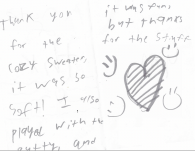 Thank you
for the
cozy sweater,
it was so
soft! I also
played with the
putty, and
it was fun,
but thanks
for the stuff